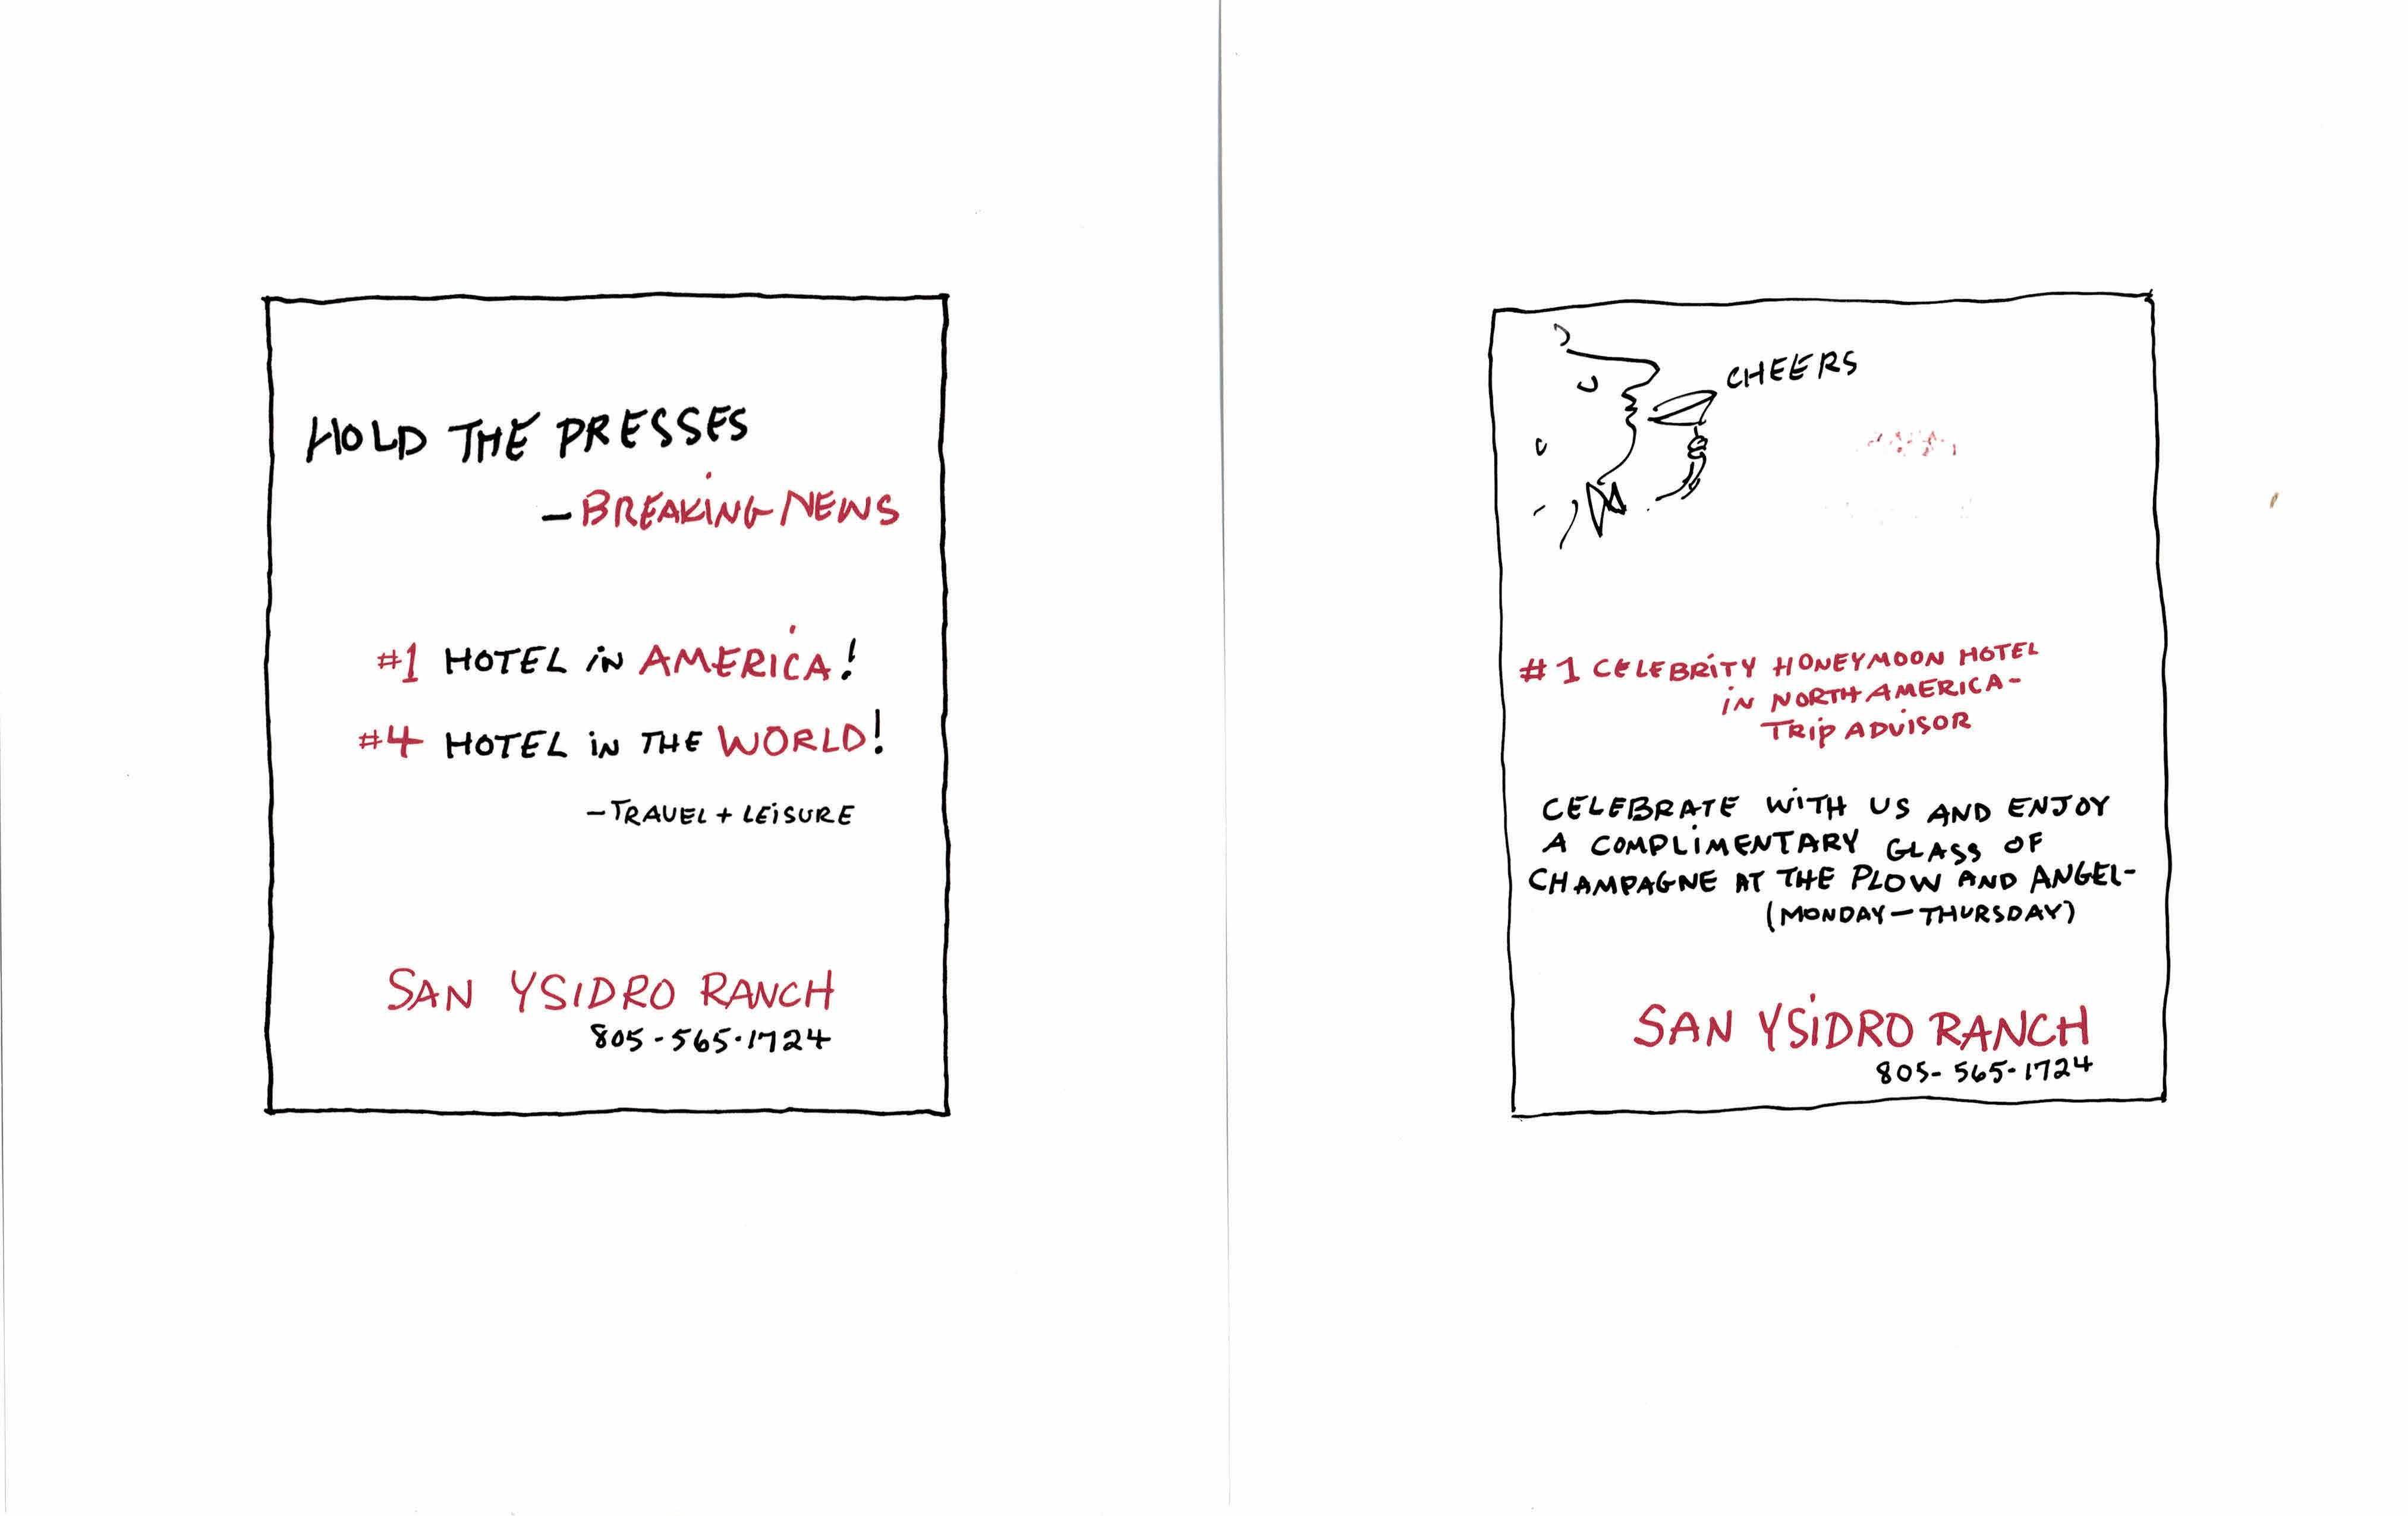 HOLD THE PRESSES
— BREAKING NEWS
#1 HOTEL IN AMERICA!
#4 HOTEL IN THE WORLD!
— TRAVEL + LEISURE
SAN YSIDRO RANCH
805-565-1724
CHEERS
#1 CELEBRITY HONEYMOON HOTEL
IN NORTH AMERICA-
TRIP ADVISOR
CELEBRATE WITH US AND ENJOY
A COMPLIMENTARY GLASS OF
CHAMPAGNE AT THE PLOW AND ANGEL-
(MONDAY — THURSDAY)
SAN YSIDRO RANCH
805-565-1724